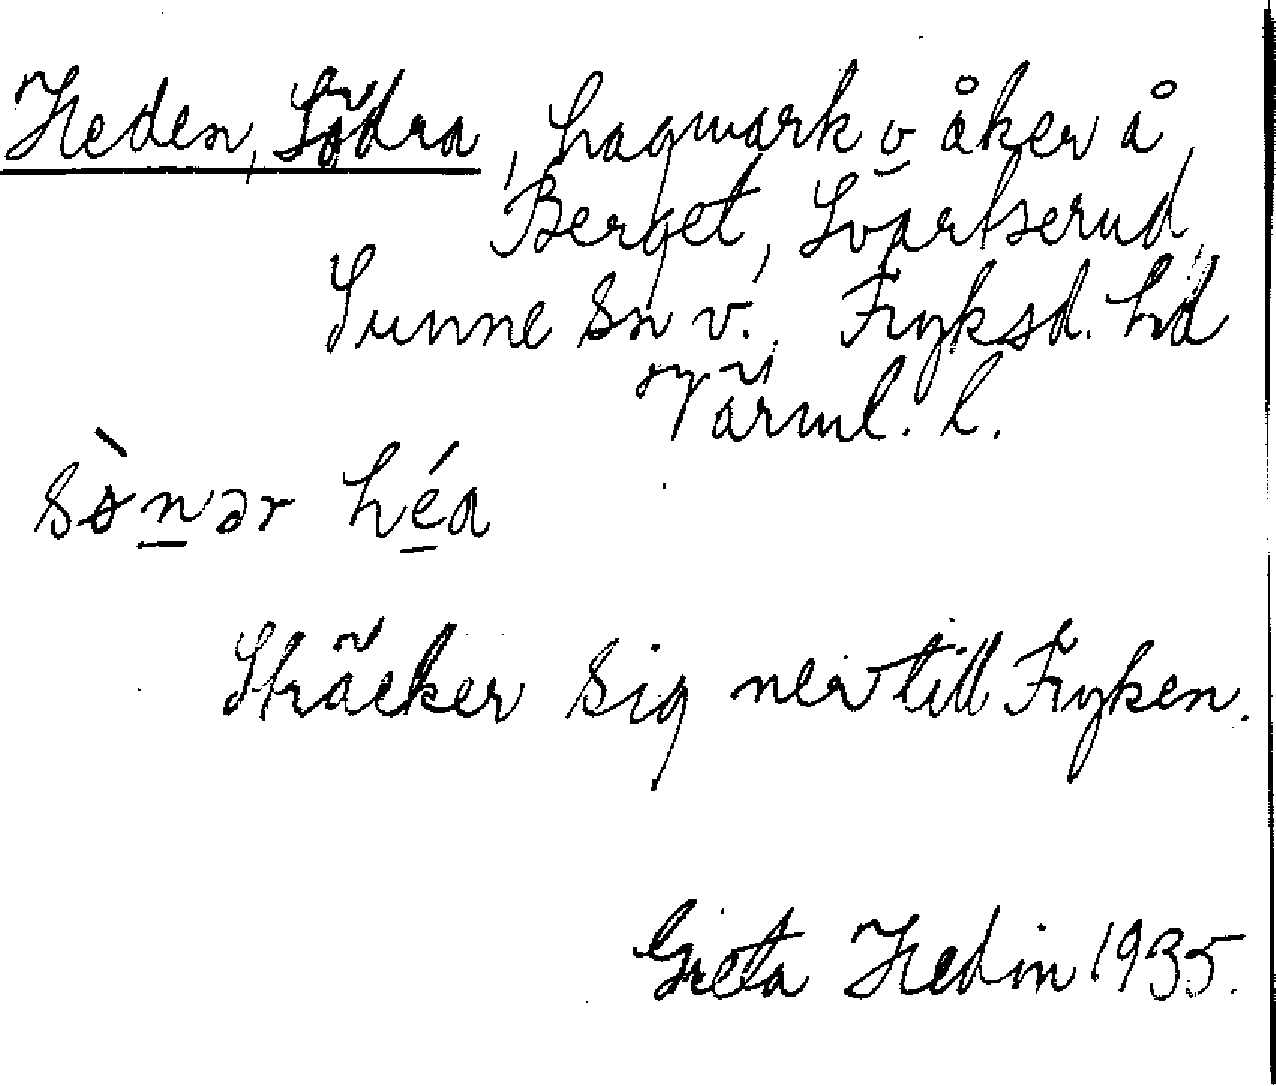 Heden, Södra, hagmark o åker å
Berget, Svartserud,
Sunne sn v. Fryksd. hd
Värml. l.
sø̀n̲ər hé̲a
Sträcker sig ner till Fryken.
Greta Hedin 1935.